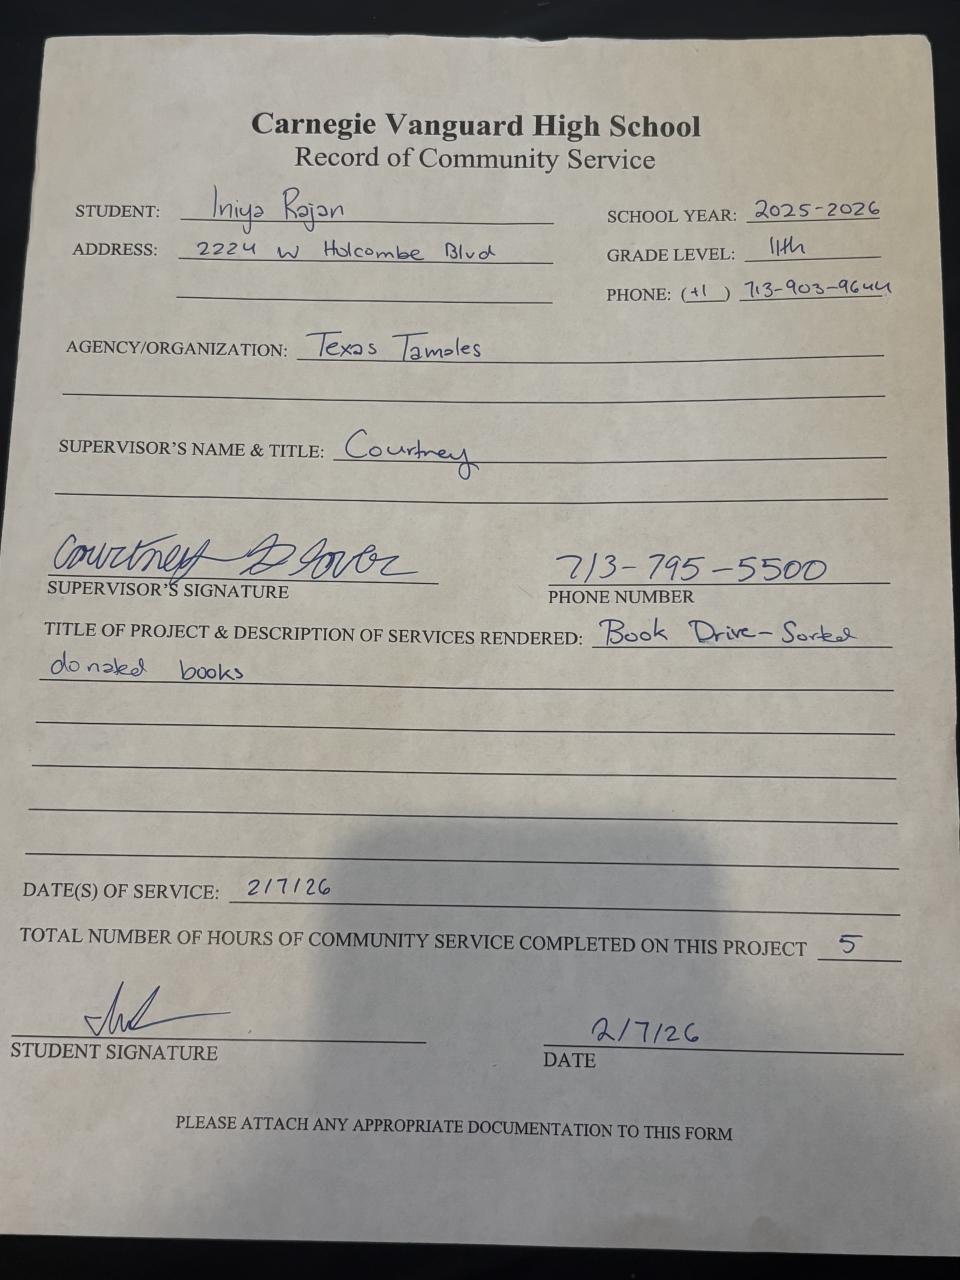 Carnegie Vanguard High School
Record of Community Service
STUDENT: Iniya Rajan
SCHOOL YEAR: 2025-2026
ADDRESS: 2224 W Holcombe Blvd
GRADE LEVEL: 11th
PHONE: (+1 ) 713-903-9644
AGENCY/ORGANIZATION: Texas Tamales
SUPERVISOR'S NAME & TITLE: Courtney
Courtney Glover
713-795-5500
SUPERVISOR'S SIGNATURE
PHONE NUMBER
TITLE OF PROJECT & DESCRIPTION OF SERVICES RENDERED: Book Drive-Sorted
donated books
DATE(S) OF SERVICE: 2/7/26
TOTAL NUMBER OF HOURS OF COMMUNITY SERVICE COMPLETED ON THIS PROJECT 5
2/7/26
STUDENT SIGNATURE
DATE
PLEASE ATTACH ANY APPROPRIATE DOCUMENTATION TO THIS FORM